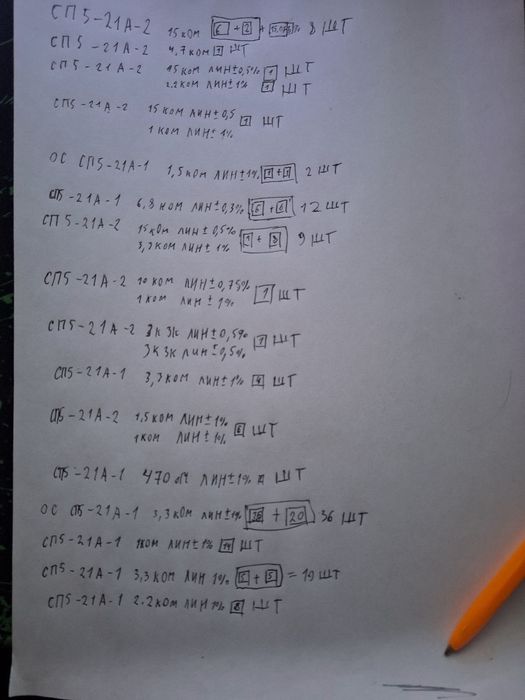 СП5-21А-2 15 ком 6 + 2 + 8 ШТ
СП5-21А-2 4,7 ком 1 ШТ
СП5-21А-2 15 ком ЛИН ± 0,5% 1 ШТ
2.2 ком ЛИН ± 1% 1 ШТ
СП5-21А-2 15 ком ЛИН ± 0,5
1 ком ЛИН ± 1% 1 ШТ
ОС СП5-21А-1 1,5 ком ЛИН ± 1% 1 + 1 2 ШТ
СП5-21А-1 6,8 ком ЛИН ± 0,3% 6 + 6 12 ШТ
СП5-21А-2 15 ком ЛИН ± 0,5% 1 + 8 9 ШТ
3,3 ком ЛИН ± 1%
СП5-21А-2 10 ком ЛИН ± 0,75%
1 ком ЛИН ± 1% 1 ШТ
СП5-21А-2 3к3к ЛИН ± 0,5% 1 ШТ
3к3к ЛИН ± 0,5%
СП5-21А-1 3,3 ком ЛИН ± 1% 4 ШТ
СП5-21А-2 1,5 ком ЛИН ± 1%
1 ком ЛИН ± 1% ШТ
СП5-21А-1 470 ом ЛИН ± 1% ШТ
ОС СП5-21А-1 3,3 ком ЛИН ± 1% + 20 36 ШТ
СП5-21А-1 1ком ЛИН ± 1% ШТ
СП5-21А-1 3,3 ком ЛИН 1% + 5 = 19 ШТ
СП5-21А-1 2.2 ком ЛИН 1% 8 ШТ